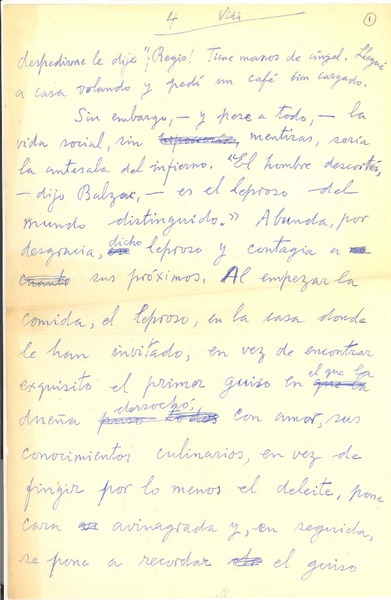 4 Vida 1
despedirme le dije "¡Regio! Tiene manos de ángel. Llegué
a casa volando y pedí un café bien cargado.
Sin embargo, — y pese a todo, — la
vida social, sin hipocresía, mentiras, sería
la antesala del infierno. "El hombre descortés,
— dijo Balzac, — es el leproso del
mundo distinguido.» Abunda, por
desgracia, dicho leproso y contagia a
cuanto sus próximos. Al empezar la
comida, el leproso, en la casa donde
le han invitado, en vez de encontrar
exquisito el primer guiso en el que la
que la
dueña derrochó,
puso todos con amor, sus
conocimientos culinarios, en vez de
fingir por lo menos el deleite, pone
cara avinagrada y, en seguida,
se pone a recordar el guiso